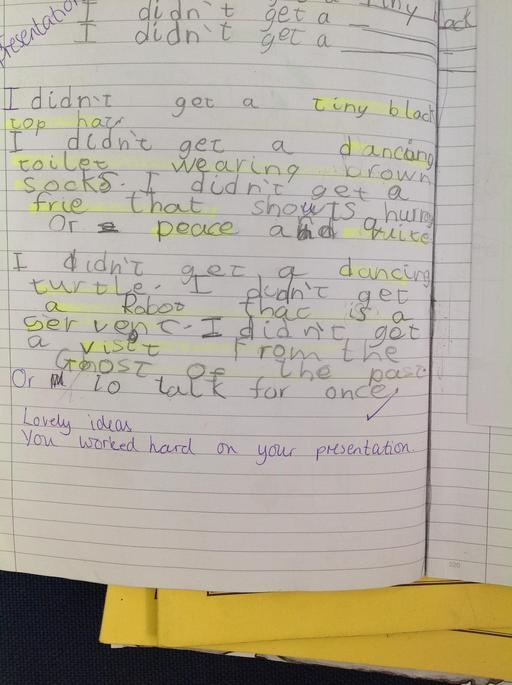 Presentation
I didn't get a tiny black
I didn't get a
I didn't get a tiny black
top hat
I didn't get a dancing
toilet wearing brown
socks. I didn't get a
frie that showts hurray
Or peace and quite
I didn't get a dancing
turtle. I didn't get
a Robot that is a
servent. I didn't get
a visit from the
Ghost of the past.
Or to talk for once
Lovely ideas
You worked hard on your presentation.